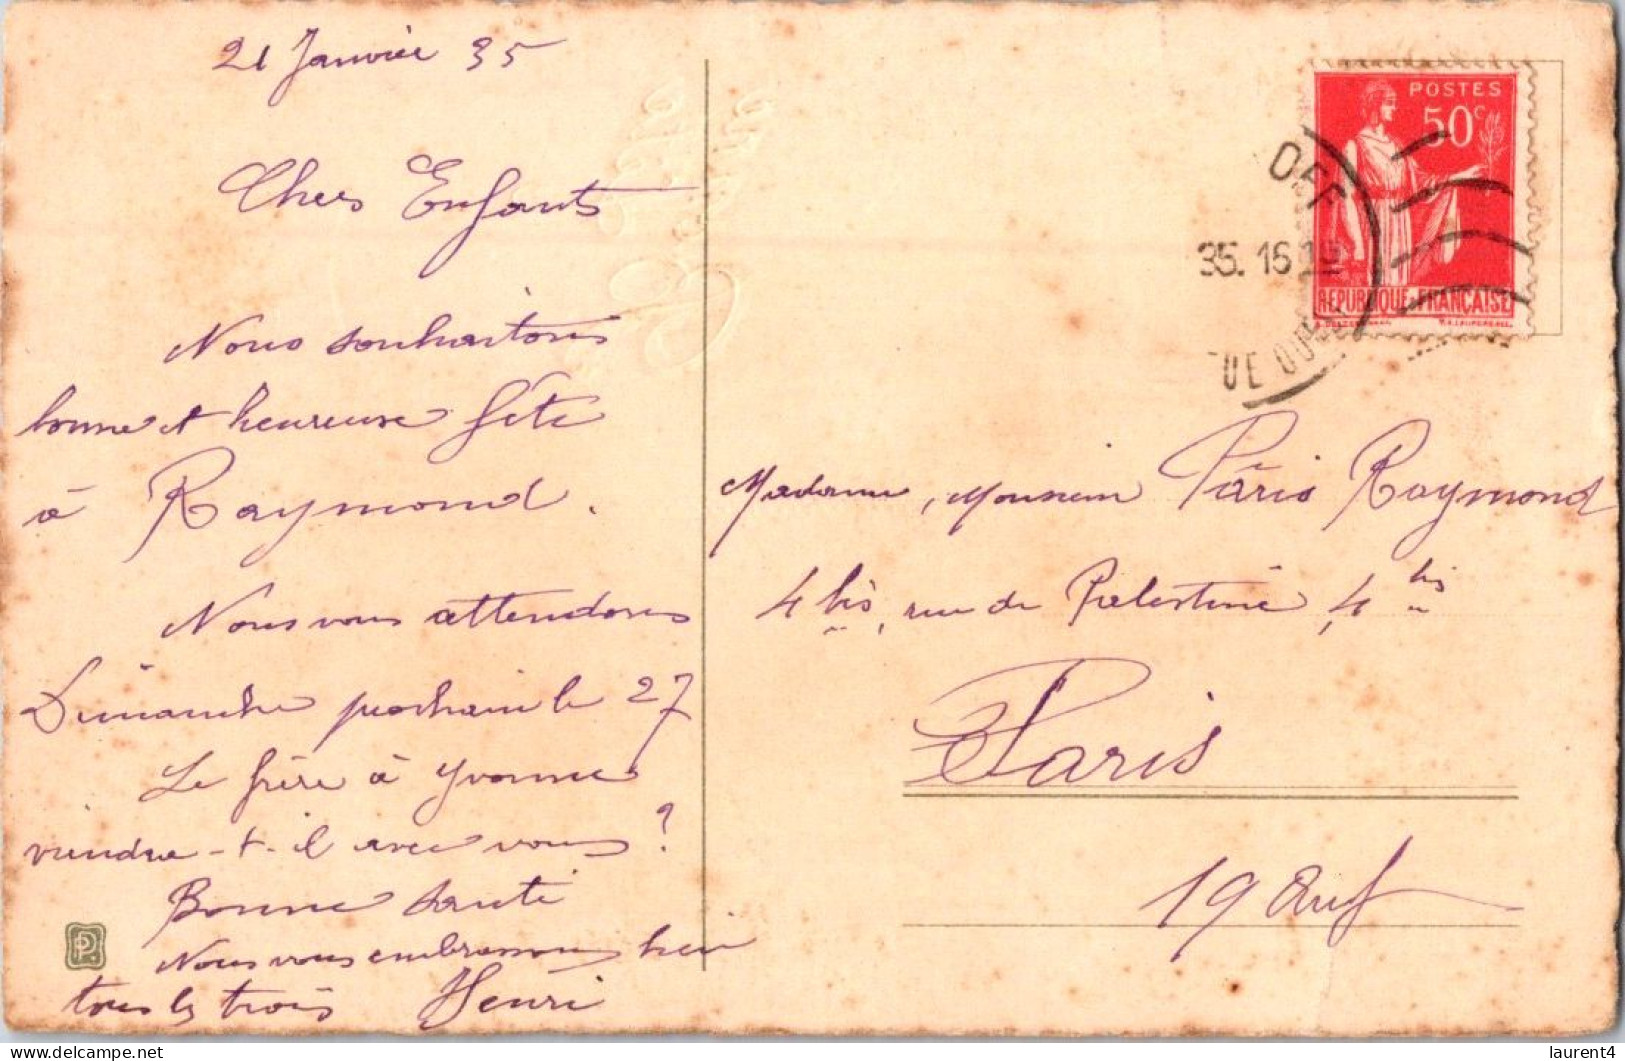 21 Janvier 35
Chers Enfants
Nous souhaitons
bonne et heureuse fête
à Raymond.
Nous vous attendons
Dimanche prochain le 27
Le frère à Yvonne
viendra-t-il avec vous ?
Bonne santé
Nous vous embrassons bien
tous les trois Henri
POSTES
50c
35. 16
REPUBLIQUE FRANÇAISE
Madame, Monsieur Pâris Raymond
4 bis, rue de Palestine, 4 bis
Paris
19 arr
laurent4